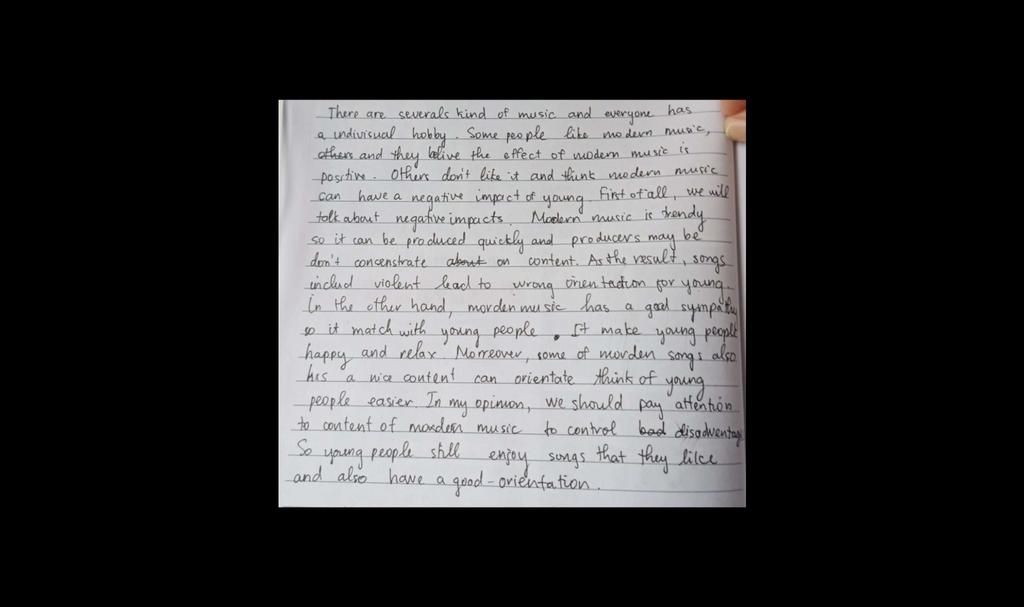 There are severals kind of music and everyone has
a indivisual hobby. Some people like modern music,
others and they belive the effect of modern music is
positive. Others don't like it and think modern music
can have a negative impact of young. First of all, we will
talk about negative impacts. Modern music is trendy
so it can be produced quickly and producers may be
don't concenstrate about on content. As the result, songs
includ violent lead to wrong orientaction for young.
In the other hand, morden music has a good sympathy
so it match with young people. It make young people
happy and relax. Morreover, some of morden songs also
has a nice content can orientate think of young
people easier. In my opinion, we should pay attention
to content of morden music to control bad disadventag
So young people still enjoy songs that they like
and also have a good-orientation.